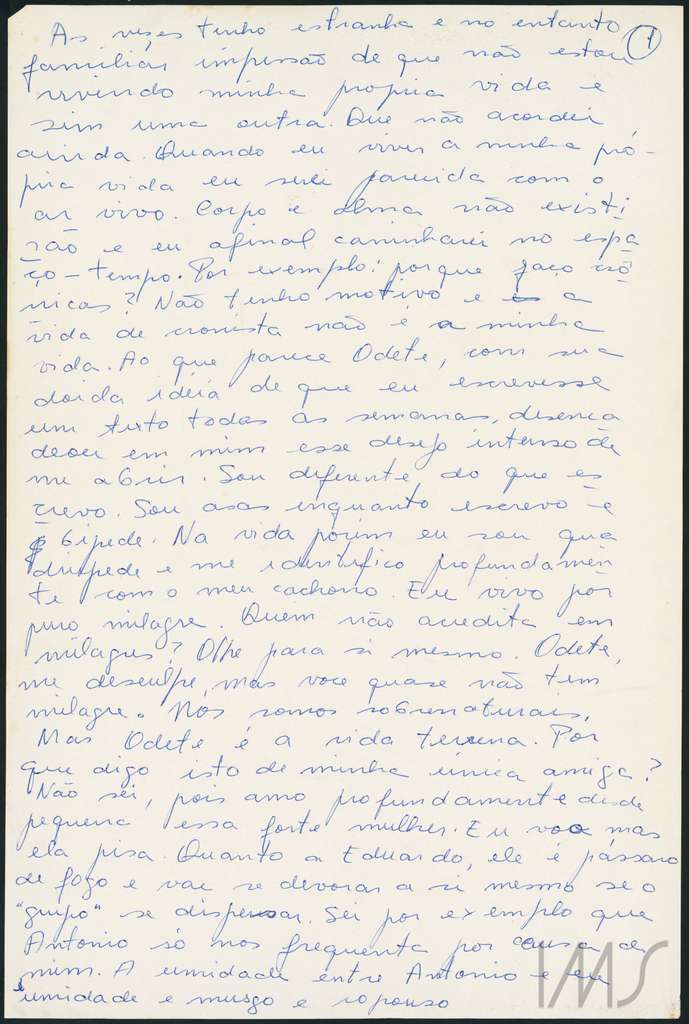 As vezes tenho estranha e no entanto 1
familiar impressão de que não estou
vivendo minha propria vida e
sim uma outra. Que não acordei
ainda. Quando eu viver a minha pró-
pria vida eu serei parecida com o
ar vivo. Corpo e alma não existi
rão e eu afinal caminharei no espa
ço-tempo. Por exemplo: porque faço crô
nicas? Não tenho motivo e a
vida de cronista não é a minha
vida. Ao que parece Odete, com sua
doida idéia de que eu escrevesse
um texto todas as semanas, desenca
deou em mim esse desejo intenso de
me abrir. Sou diferente do que es
crevo. Sou asas enquanto escrevo e
bipede. Na vida porém eu sou qua
drupede e me identifico profundamen
te com o meu cachorro. Eu vivo por
puro milagre. Quem não acredita em
milagres? Olhe para si mesmo. Odete,
me desculpe, mas voce quase não tem
milagre. Nós somos sobrenaturais.
Mas Odete é a vida terrena. Por
que digo isto de minha única amiga?
Não sei, pois amo profundamente desde
pequena essa forte mulher. Eu voo mas
ela pisa. Quanto a Eduardo, ele é pássaro
de fogo e vae se devorar a si mesmo se o
"grupo" se dispersar. Sei por exemplo que
Antonio só nos frequenta por causa de
mim. A umidade entre Antonio e eu
umidade e musgo e repouso
IMS